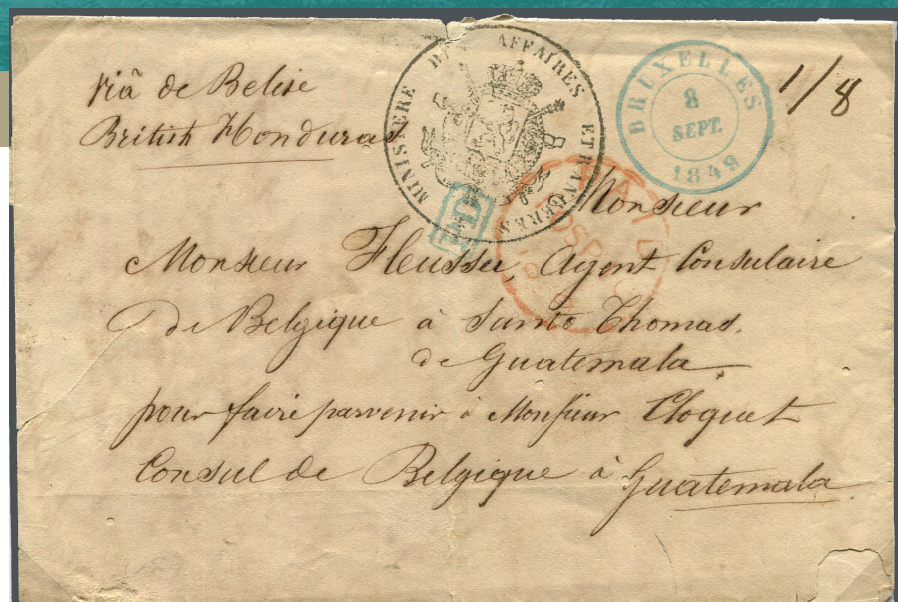 viâ de Belise
British Honduras
MINISTERE DES AFFAIRES ETRANGERES
BRUXELLES
8
SEPT.
1849
1/8
PD
PAID
Monsieur
Monsieur Fleussu, Agent Consulaire
de Belgique à Santo Thomas.
de Guatemala
pour faire parvenir à Monsieur Cloquet
Consul de Belgique à Guatemala.